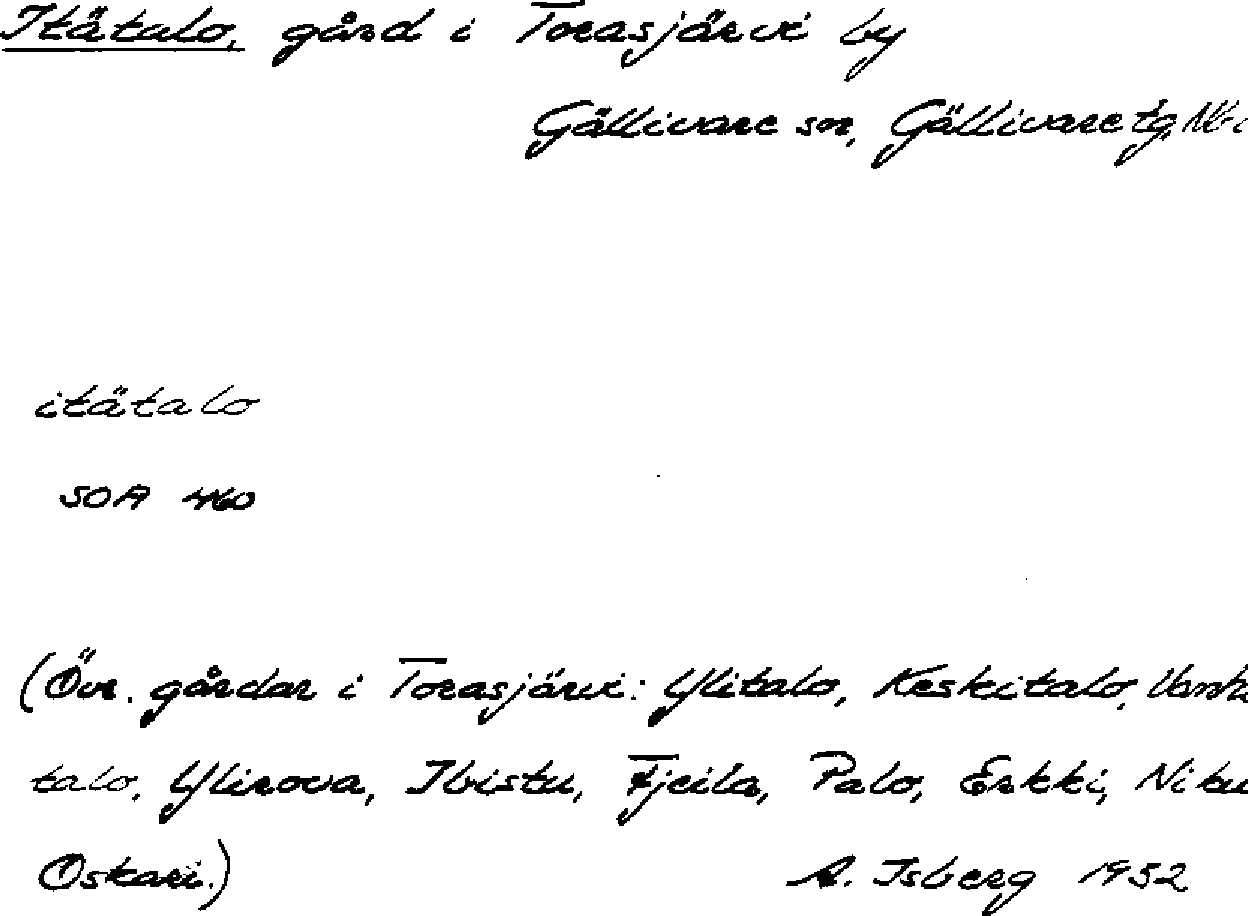 Itätalo, gård i Torasjärvi by
Gällivare sn, Gällivare tg, Nb
itätalo
SOA 460
(Övr. gårdar i Torasjärvi: Ylitalo, Keskitalo, Vanha
talo, Ylirova, Ibistu, Fjeila, Palo, Erkki, Niku
Oskari.) A. Isberg 1932